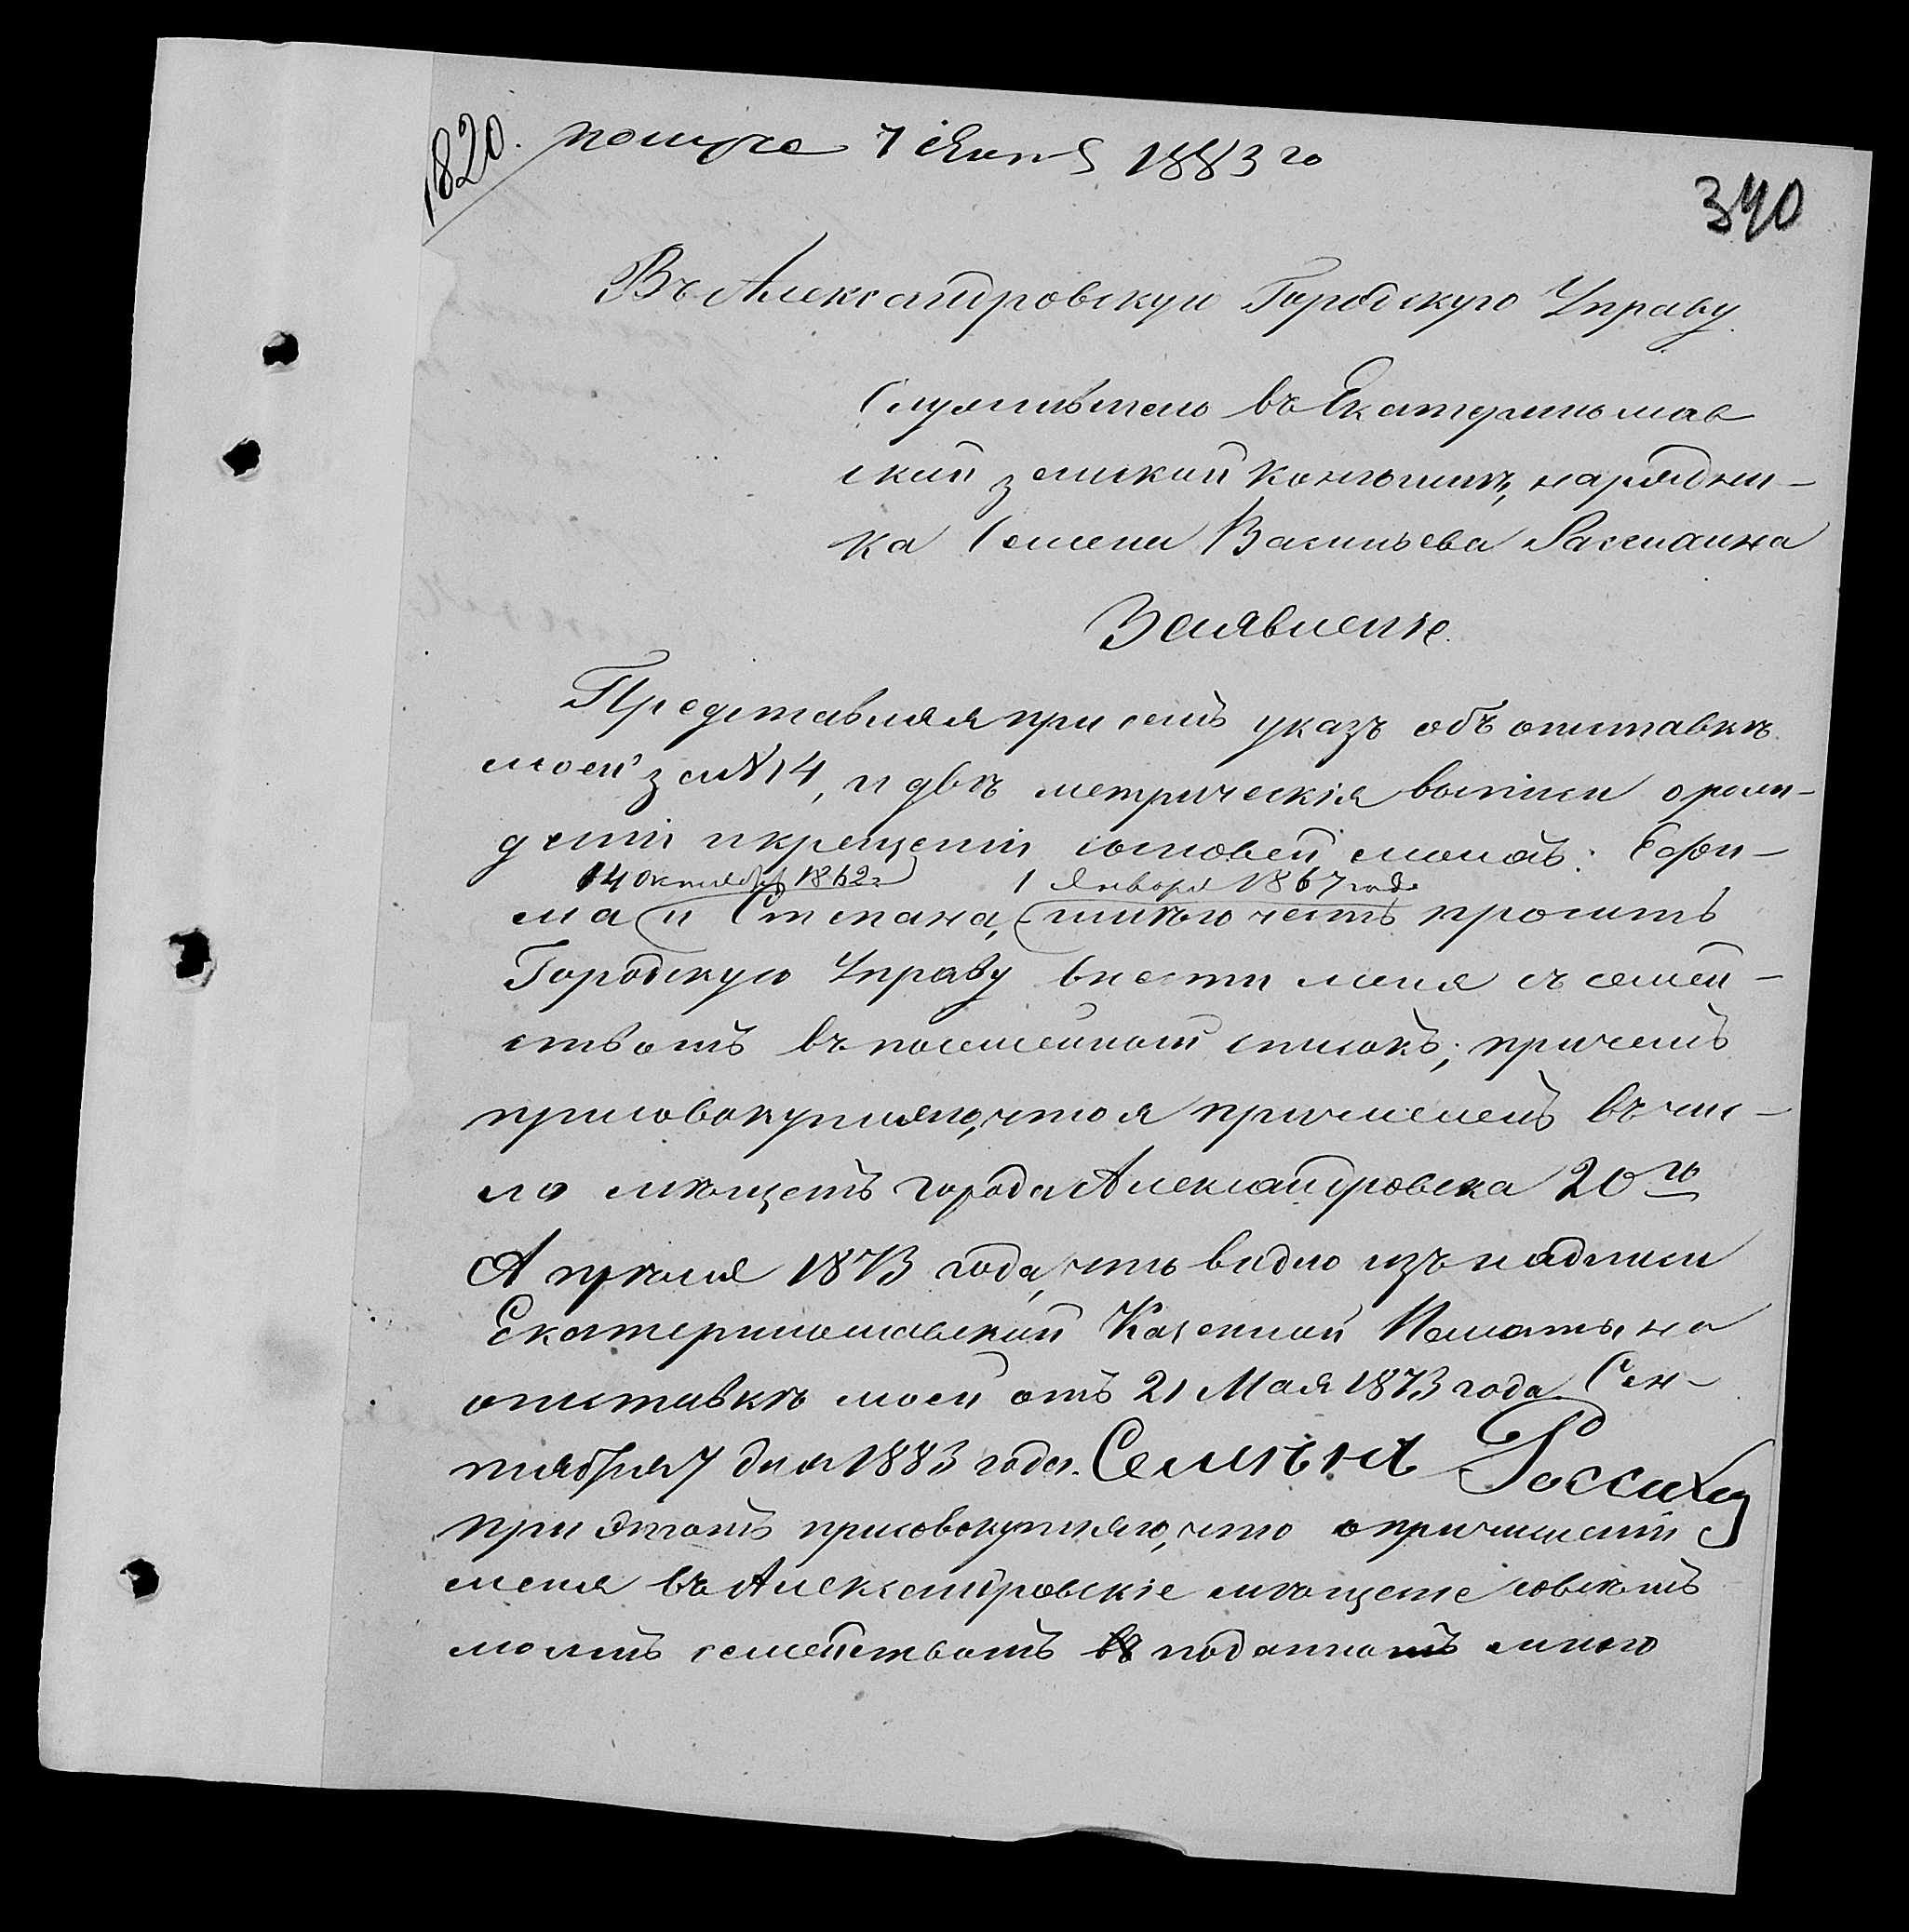 1820. получе 7 Сент 1883 го
340
Въ Александровскую Городскую Управу
Служителя въ Екатеринослав
ской земской конюшнѣ, нарядни-
ка Семена Васильева
Заявленіе.
Представляя при семъ указъ объ отставкѣ
моей за № 14, и двѣ метрическія выписи о рож-
деніи и крещеніи сыновей моихъ: Ефи-
14 Октября 1862 1 Января 1867 года
ма и Степана, имѣю честь просить
Городскую Управу внести меня съ семей-
ствомъ въ посемейной списокъ; причемъ
присовокупляю, что я причисленъ въ чис-
ло мѣщанъ города Александровска 20го
Апрѣля 1873 года, что видно изъ надписи
Екатеринославской Казенной Палаты на
отставкѣ моей отъ 21 Мая 1873 года. Сен-
тября 7 дня 1883 года. Семѣнъ
при этомъ присовокупляю, что о причисленіи
меня въ Александровскіе мѣщане совсѣмъ
моимъ семействомъ поданномъ мною